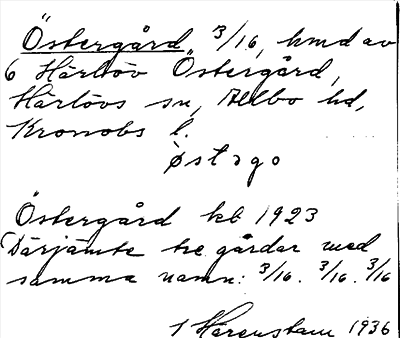 Östergård, 3/16, hmd av
6 Härlöv Östergård,
Härlövs sn, Allbo hd,
Kronobs l.
østəgo
Östergård kb 1923
(Därjämte tre gårdar med
samma namn: 3/16. 3/16. 3/16
Harenstam 1936